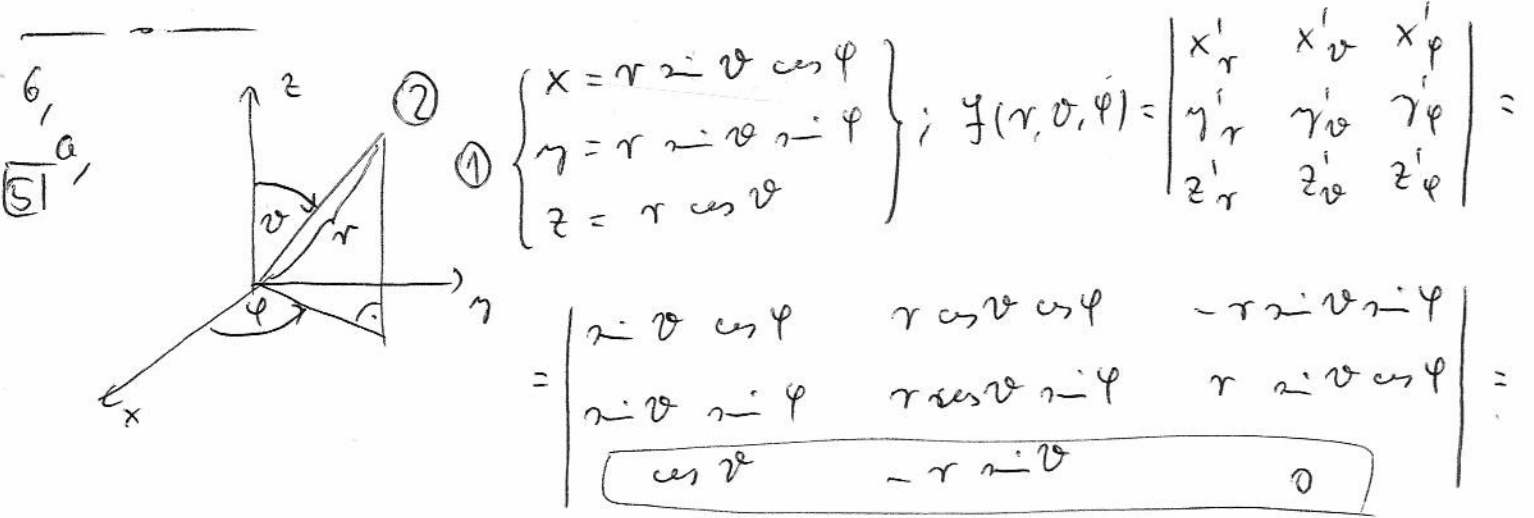 6,
a,
51
z
②
ϑ
r
φ
y
x
① { x = r sin ϑ cos φ
y = r sin ϑ sin φ
z = r cos ϑ } ; J(r,ϑ,φ) = | x'r x'ϑ x'φ
y'r y'ϑ y'φ
z'r z'ϑ z'φ | =
= | sin ϑ cos φ r cos ϑ cos φ - r sin ϑ sin φ
sin ϑ sin φ r cos ϑ sin φ r sin ϑ cos φ | =
cos ϑ - r sin ϑ 0